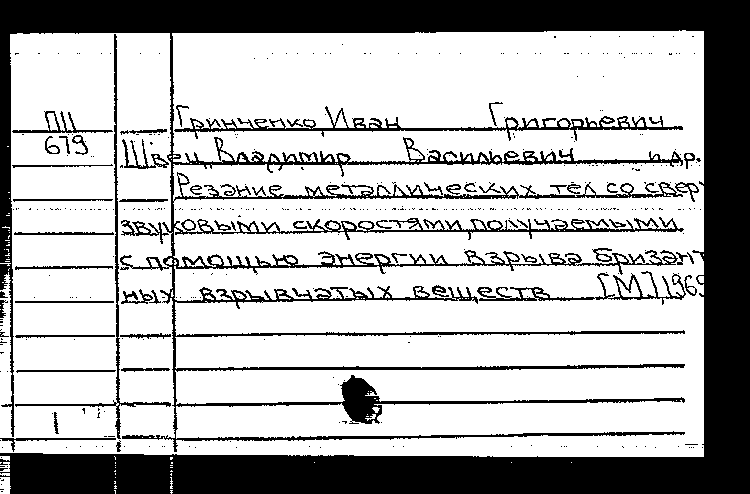 ПII Гринченко, Иван Григорьевич
679 Швец, Владимир Васильевич и др.
Резание металлических тел со свер
звуковыми скоростями, получаемыми
с помощью энергии взрыва бризант
ных взрывчатых веществ [М], 1969
1